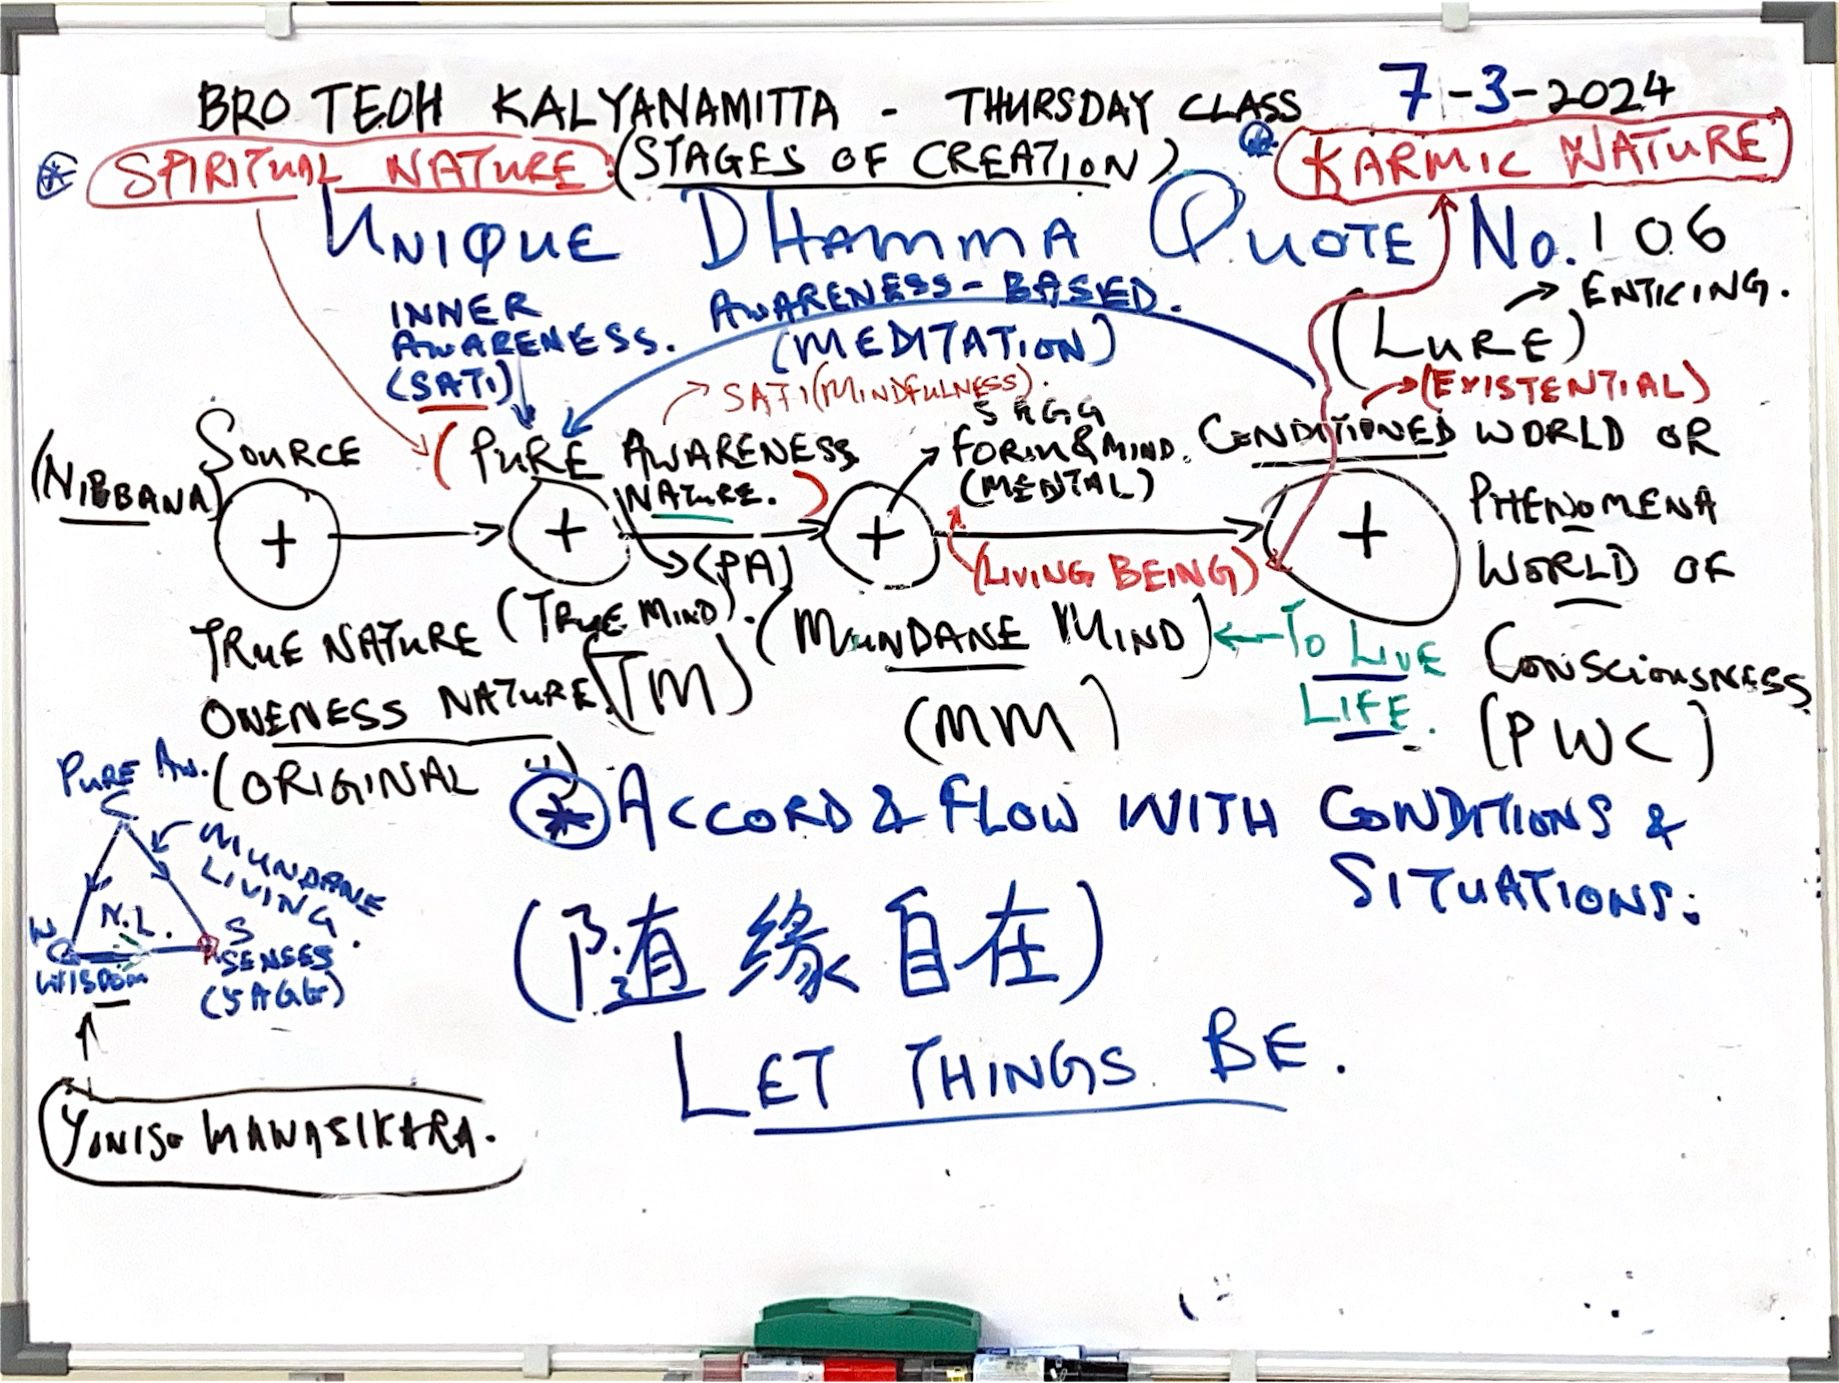 BRO TEOH KALYANAMITTA - THURSDAY CLASS 7-3-2024
SPIRITUAL NATURE: (STAGES OF CREATION) KARMIC NATURE
UNIQUE DHAMMA QUOTE No. 106
INNER AWARENESS. (SATI)
AWARENESS-BASED.
(MEDITATION)
SATI (MINDFULNESS).
(LURE) → ENTICING.
→ (EXISTENTIAL)
(NIBBANA) SOURCE
(PURE AWARENESS NATURE.)
→ (PA)
5 AGG
FORM & MIND.
(MENTAL)
CONDITIONED WORLD OR
PHENOMENA
WORLD OF
CONSCIOUSNESS
(PWC)
+ + + +
(LIVING BEING)
TRUE NATURE
ONENESS NATURE.
(ORIGINAL ")
(TRUE MIND).
(TM)
(MUNDANE MIND)
(MM)
← TO LIVE
LIFE.
PURE AW.
MUNDANE
LIVING.
N.L.
W
WISDOM
S
SENSES
(5 AGG)
YONISO MANASIKARA.
* ACCORD & FLOW WITH CONDITIONS &
SITUATIONS.
(随缘自在)
LET THINGS BE.